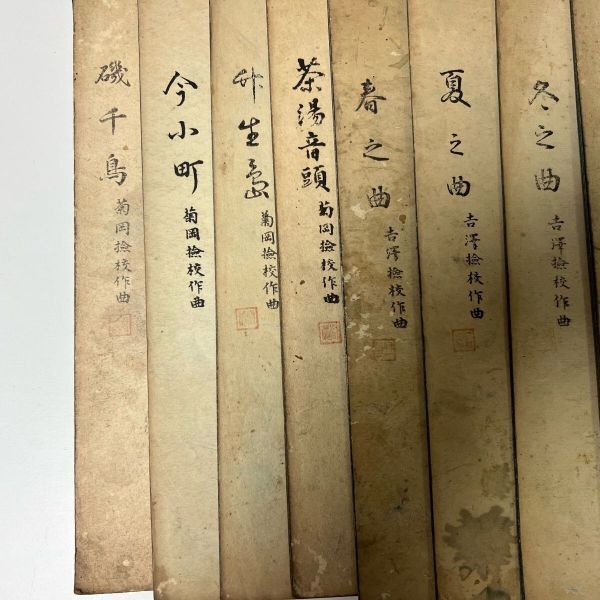 磯千鳥
菊岡撿校作曲
今小町
菊岡撿校作曲
竹生島
菊岡撿校作曲
茶湯音頭
菊岡撿校作曲
春之曲
吉澤撿校作曲
夏之曲
吉澤撿校作曲
冬之曲
吉澤撿校作曲